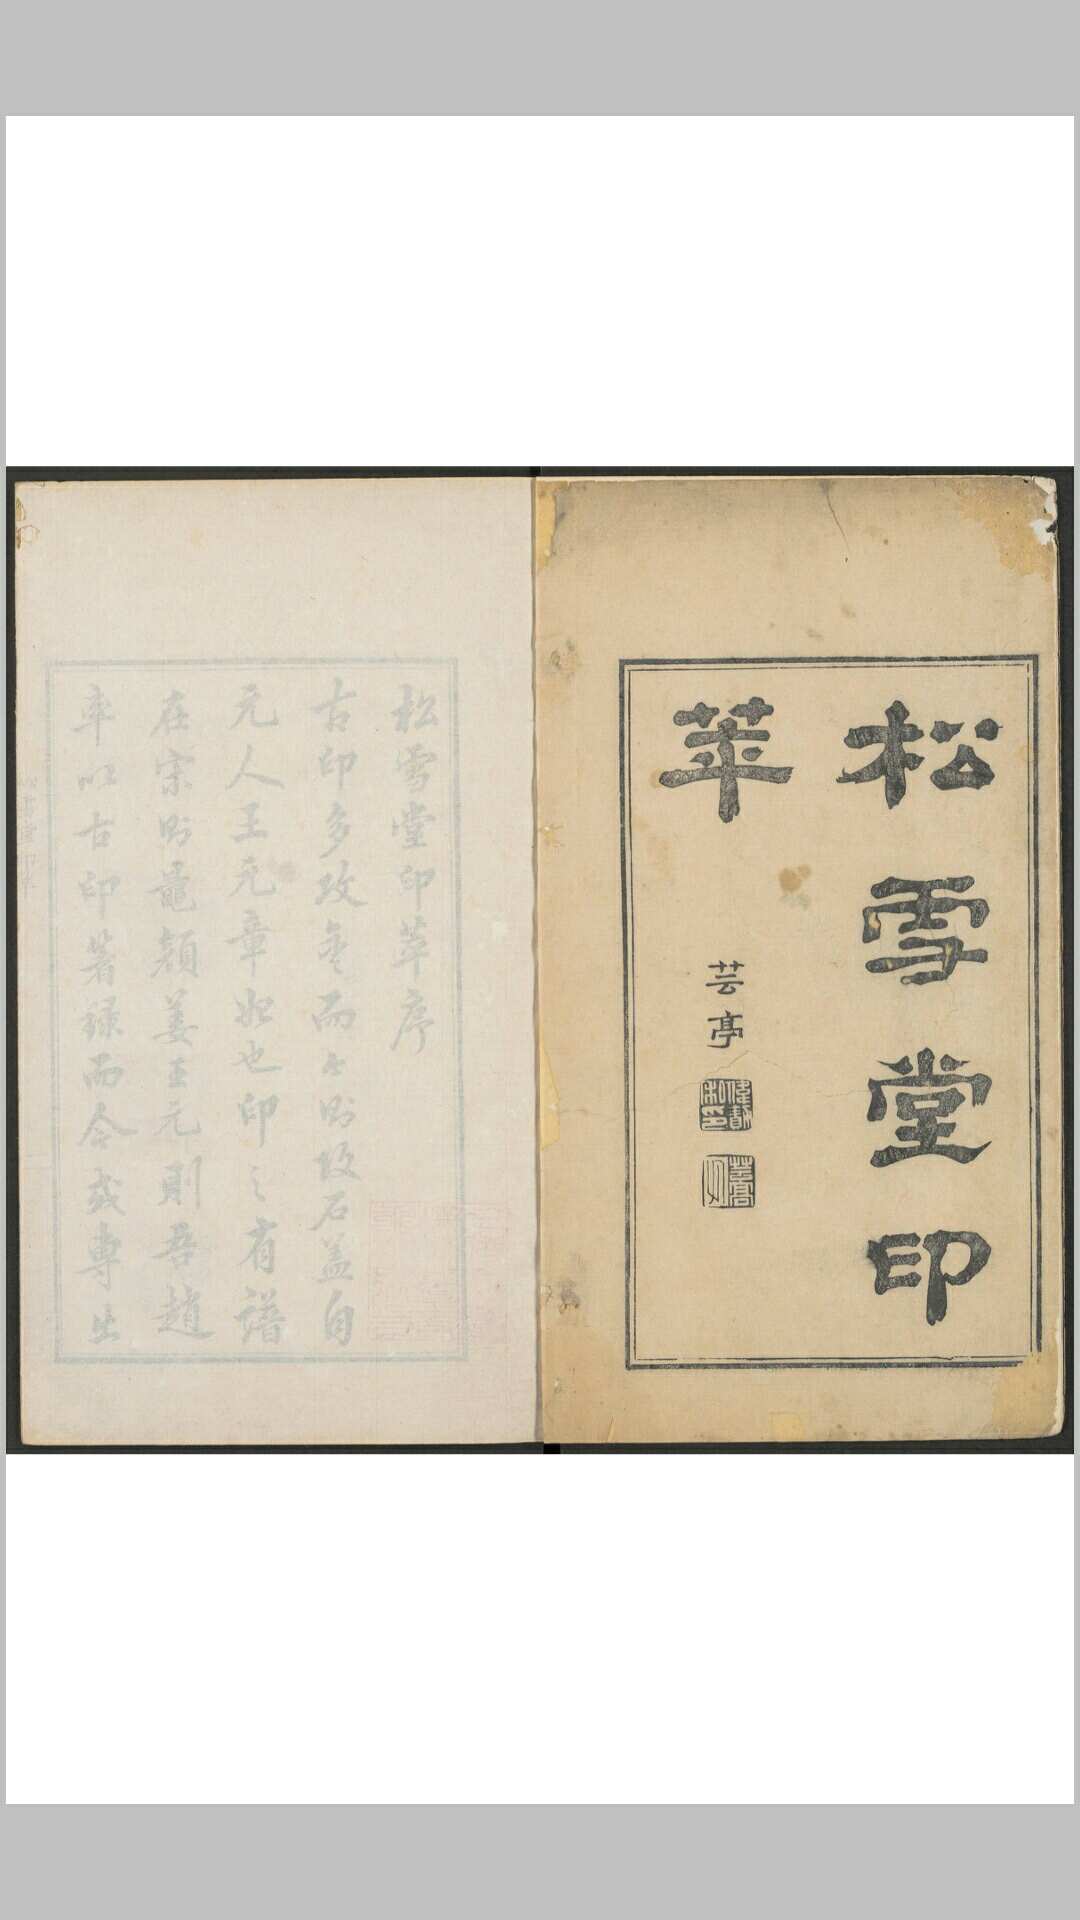 松雪堂印
萃
芸亭
松雪堂印萃序
古印多攻金而今則攻石蓋自
元人王元章始也印之有譜
在宋則鼂顏姜王元則吾趙
率以古印著錄而今或專出